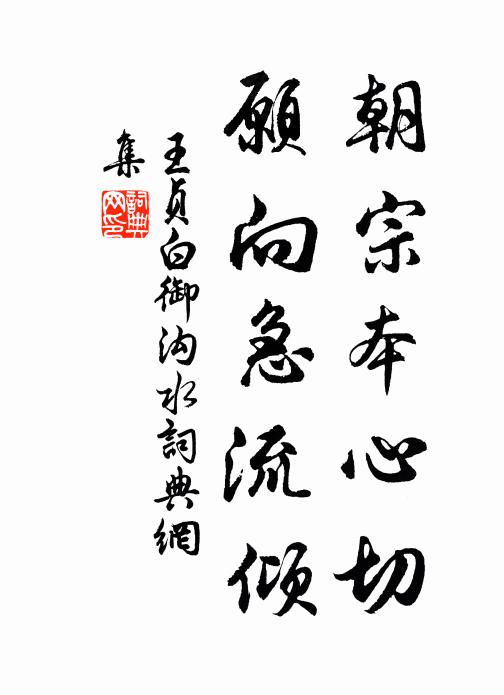 朝宗本心切
願向急流傾
王貞白御沟水詞典網
集
詞典
网印